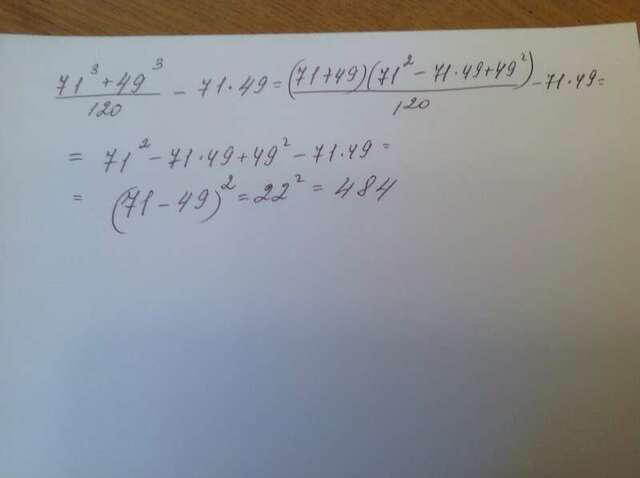 71³+49³/120 - 71·49 = (71+49)(71²-71·49+49²)/120 - 71·49 =
= 71² - 71·49 + 49² - 71·49 =
= (71-49)² = 22² = 484